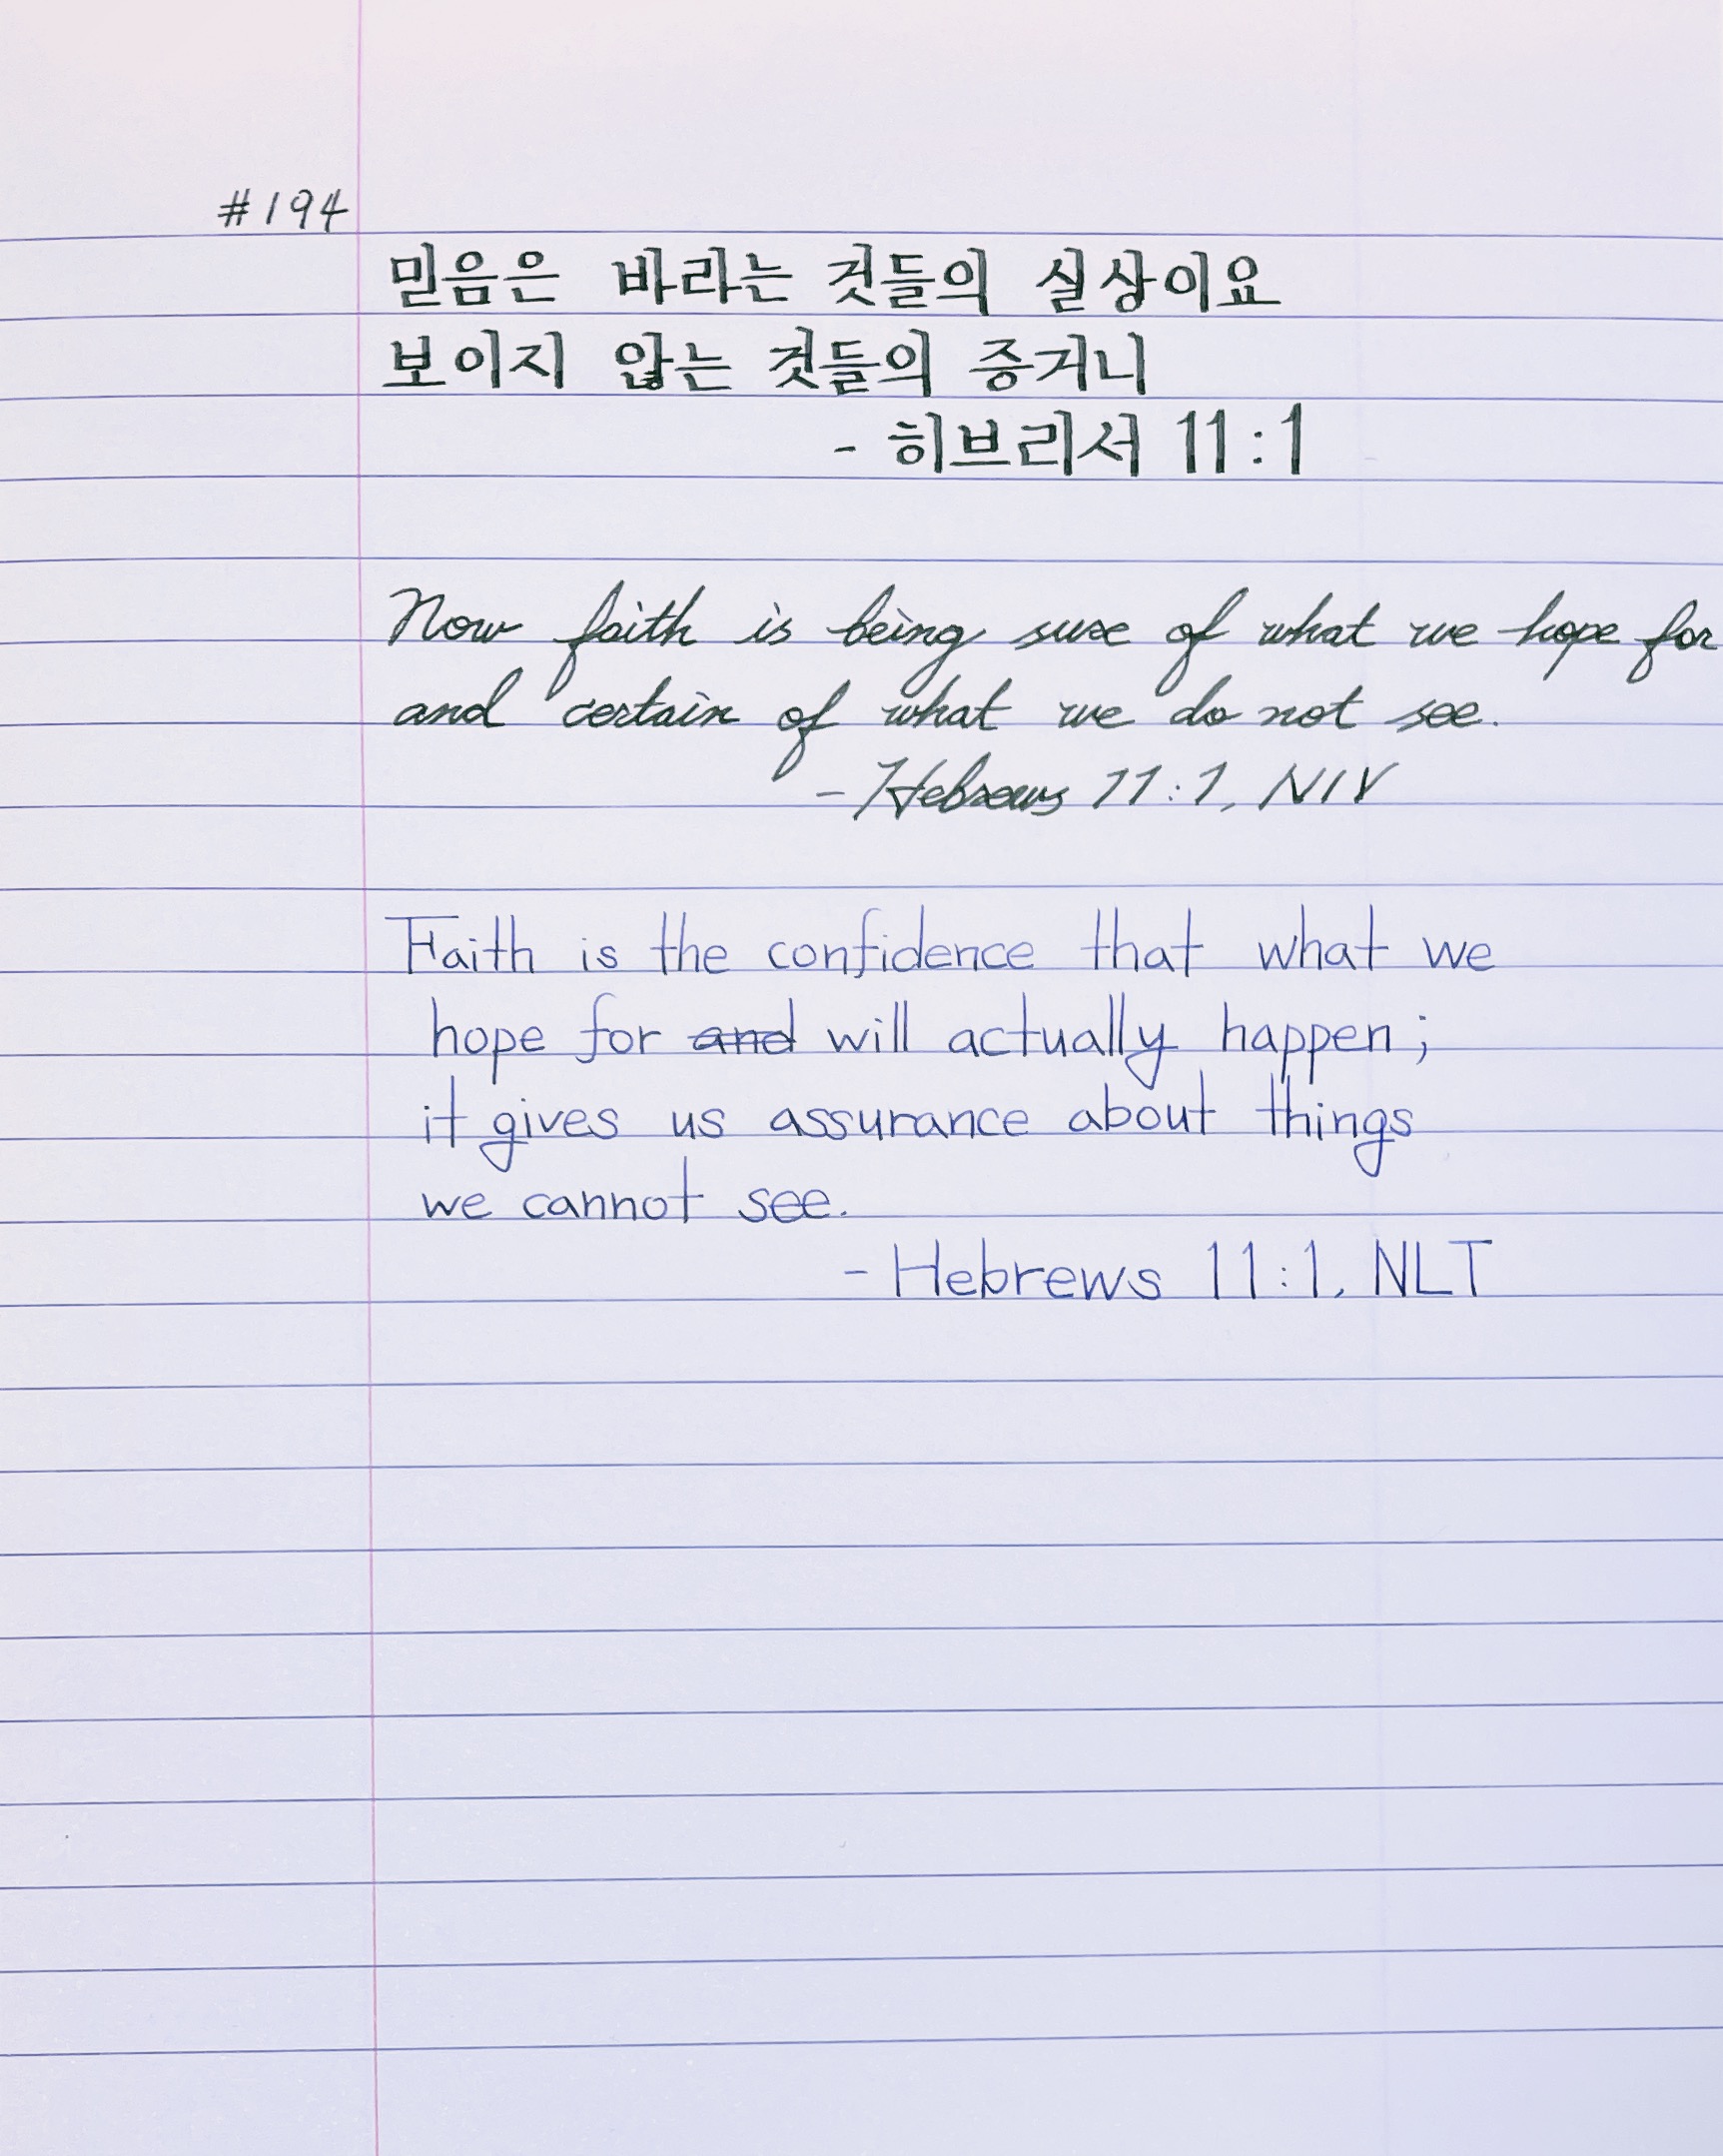 #194
믿음은 바라는 것들의 실상이요
보이지 않는 것들의 증거니
- 히브리서 11:1
Now faith is being sure of what we hope for
and certain of what we do not see.
- Hebrews 11:1, NIV
Faith is the confidence that what we
hope for and will actually happen;
it gives us assurance about things
we cannot see.
- Hebrews 11:1, NLT